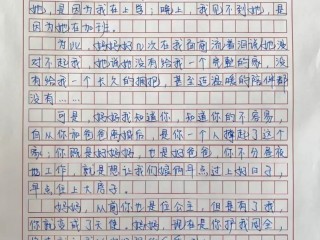 她,是因为我在上学;晚上,我见不到她,是
因为她在加班。
为此,妈妈好几次在我面前流着泪说她没
对不起我,她说没有给我一个完整的家,没
有给我一个长久的拥抱,甚至连温暖的陪伴都
没有……
可是,妈妈我知道你,知道你的不容易,
自从你和爸爸离婚后,是你一个人撑起了这个
家;你既是好妈妈,也是好爸爸,你不分昼夜
地工作,就是想让我们能够早点过上好日子,
早点住上大房子。
妈妈,从前你也是位公主,但是有了我,
你就变成了天使。妈妈,现在是你护我周全,